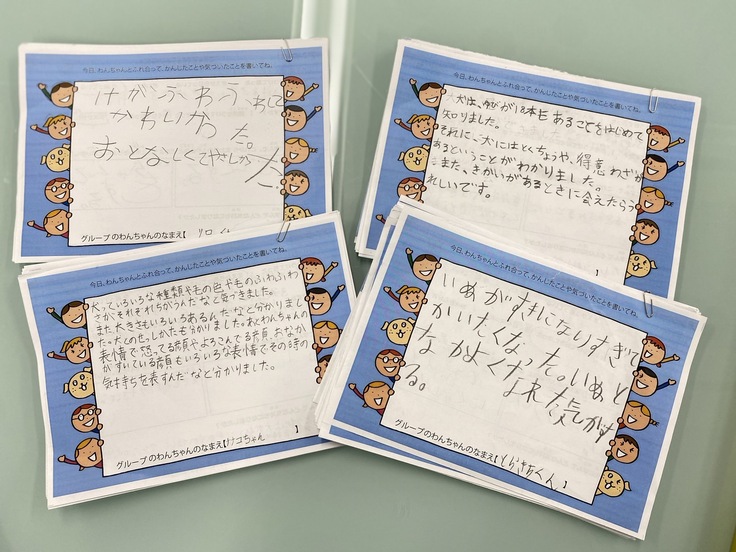 今日、わんちゃんとふれ合って、かんじたことや気づいたことを書いてね。
けがふわふわしてて
かわいかった。
おとなしくてやさしかった
グループのわんちゃんのなまえ【
今日、わんちゃんとふれ合って、かんじたことや気づいたことを書いてね。
犬は、ゆびが18本もあることをはじめて
知りました。
それに、犬にはとくちょうや、得意わざが
あるということがわかりました。
また、きかいがあるときに会えたらう
れしいです。
】
今日、わんちゃんとふれ合って、かんじたことや気づいたことを書いてね。
犬っていろいろな種類や毛の色や毛のふわふわ
さがそれぞれちがうんだなと気づきました。
また大きさもいろいろあるんだなと分かりまし
た。犬のせっしかたも分かりました。あとわんちゃんの
表情で怒ってる顔やよろこんでる顔、おなか
がすいている顔もいろいろな表情でその時の
気持ちを表すんだなと分かりました。
グループのわんちゃんのなまえ【ナコちゃん 】
今日、わんちゃんとふれ合って、かんじたことや気づいたことを書いてね。
いぬがすきになりすぎて
かいたくなった。いぬと
なかよくなれた気がす
る。
グループのわんちゃんのなまえ【とらきちくん】